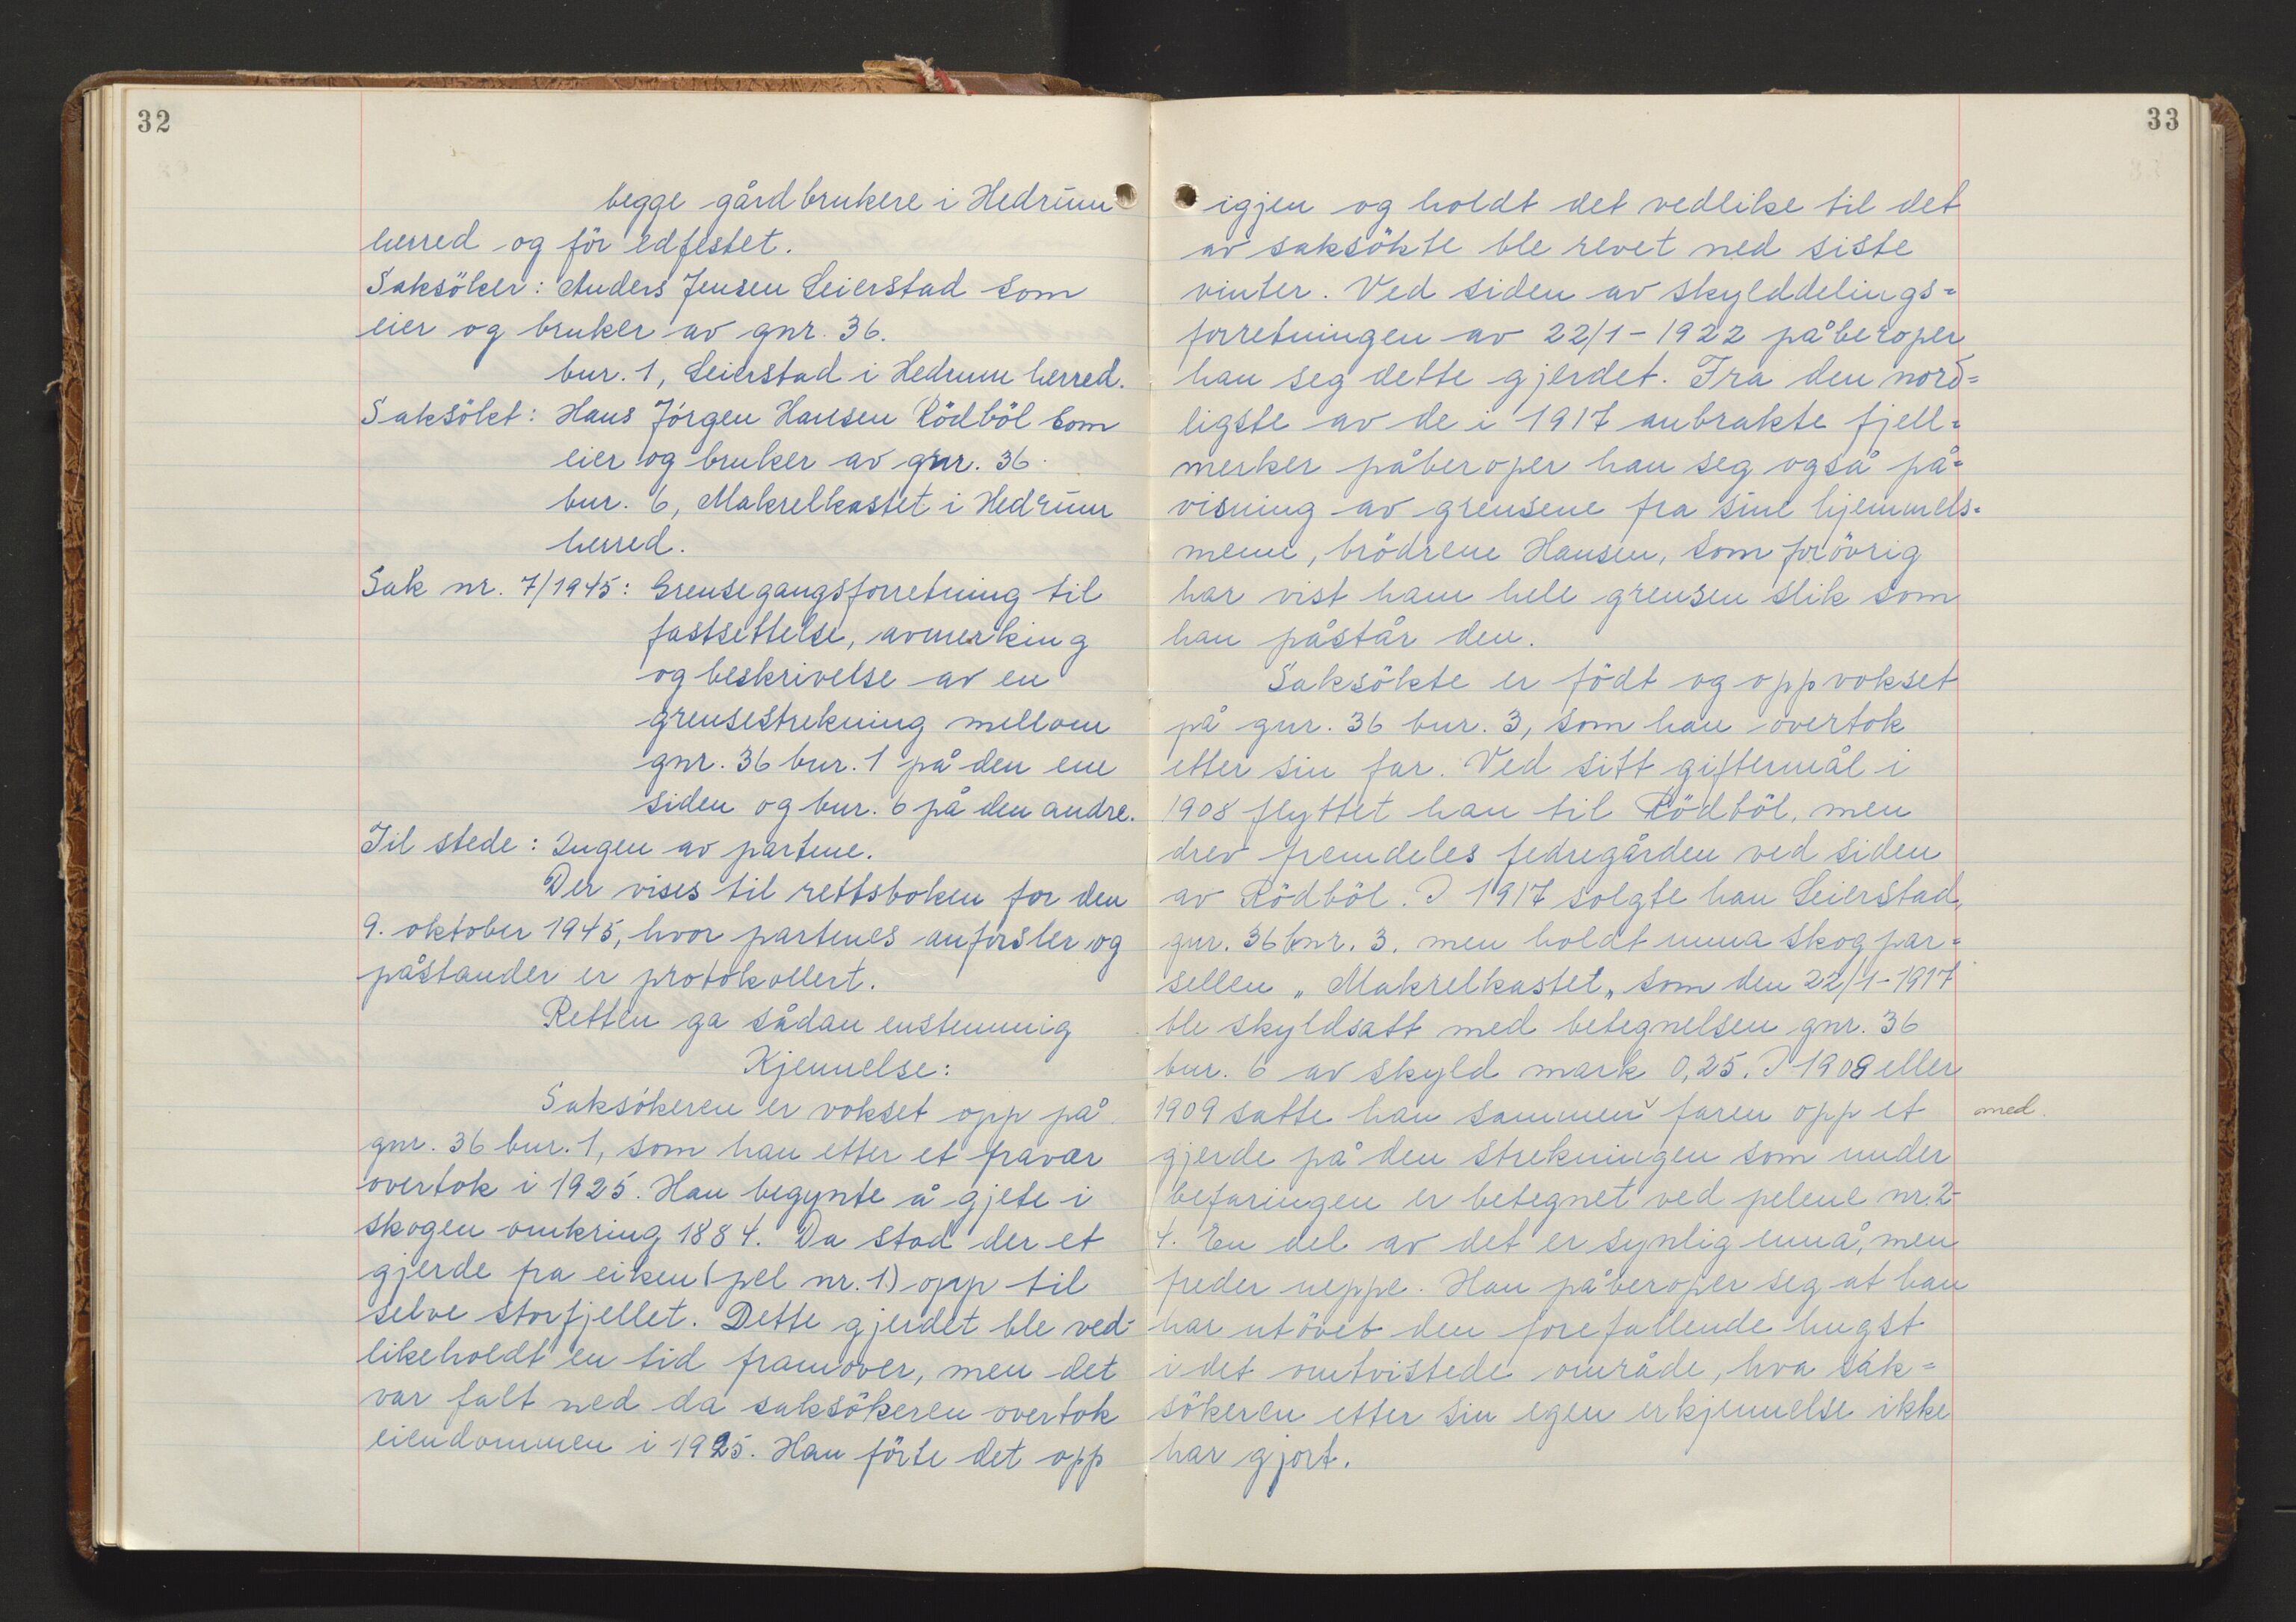 32
begge gårdbrukere i Hedrum
herred og för edfestet.
Saksöker: Anders Jensen Leierstad som
eier og bruker av gnr. 36.
bnr. 1, Leierstad i Hedrum herred.
Saksökt: Hans Jörgen Hansen Rödböl som
eier og bruker av gnr. 36.
bnr. 6, Makrelkastet i Hedrum
herred.
Sak nr. 7/1945: Grensegangsforretning til
fastsettelse, avmerking
og beskrivelse av en
grensestrekning mellom
gnr. 36 bnr. 1 på den ene
siden og bnr. 6 på den andre.
Til stede: Ingen av partene.
Der vises til rettsboken for den
9. oktober 1945, hvor partenes anförsler og
påstander er protokollert.
Retten ga sådan enstemmig
Kjennelse:
Saksökeren er vokset opp på
gnr. 36 bnr. 1, som han etter et fravær
overtok i 1925. Han begynte å gjete i
skogen omkring 1884. Da stod der et
gjerde fra eiken (pel nr. 1) opp til
selve storfjellet. Dette gjerdet ble ved-
likeholdt en tid framover, men det
var falt ned da saksökeren overtok
eiendommen i 1925. Han förte det opp
33
igjen og holdt det vedlike til det
av saksökte ble revet ned siste
vinter. Ved siden av skylddelings=
forretningen av 22/1-1922 påberoper
han seg dette gjerdet. Fra den nord=
ligste av de i 1917 anbrakte fjell=
merker påberoper han seg også på=
visning av grensene fra sine hjemmels=
menn, brödrene Hansen, som forövrig
har vist ham hele grensen slik som
han påstår den.
Saksökte er födt og oppvokset
på gnr. 36 bnr. 3, som han overtok
etter sin far. Ved sitt giftermål i
1908 flyttet han til Rödböl, men
drev fremdeles fedregården ved siden
av Rödböl. I 1917 solgte han Leierstad,
gnr. 36 bnr. 3. men holdt unna skogpar=
sellen „Makrelkastet„ som den 22/1-1917
ble skyldsatt med betegnelsen gnr. 36
bnr. 6 av skyld mark 0,25. I 1908 eller
1909 satte han sammen ᵛ faren opp et
med.
gjerde på den strekningen som under
befaringen er betegnet ved pelene nr. 2-
4. En del av det er synlig ennå, men
freder neppe. Han påberoper seg at han
har utövet den forefallende hugst
i det omtvistede område, hva sak=
sökeren etter sin egen erkjennelse ikke
har gjort.